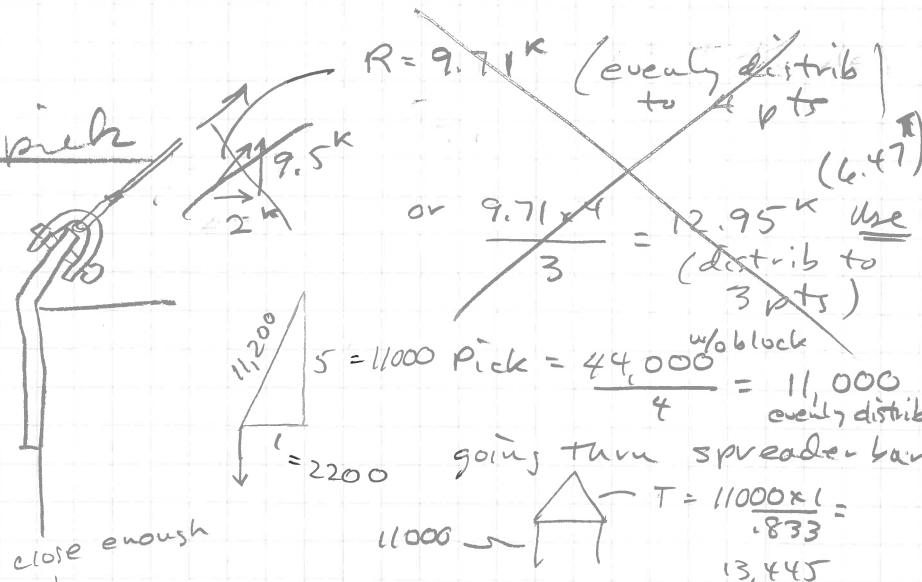 pick
R = 9.71ᴷ (evenly distrib
to 4 pts
9.5ᴷ
2ᴷ
(6.47)
or 9.71 x 4 / 3 = 12.95ᴷ use
(distrib to
3 pts)
11,200
5 = 11000
1
= 2200
Pick = 44,000 / 4 = 11,000
w/o block
evenly distrib
going thru spreader bar
11000
T = 11000 x 1 / .833 =
13,445
close enough